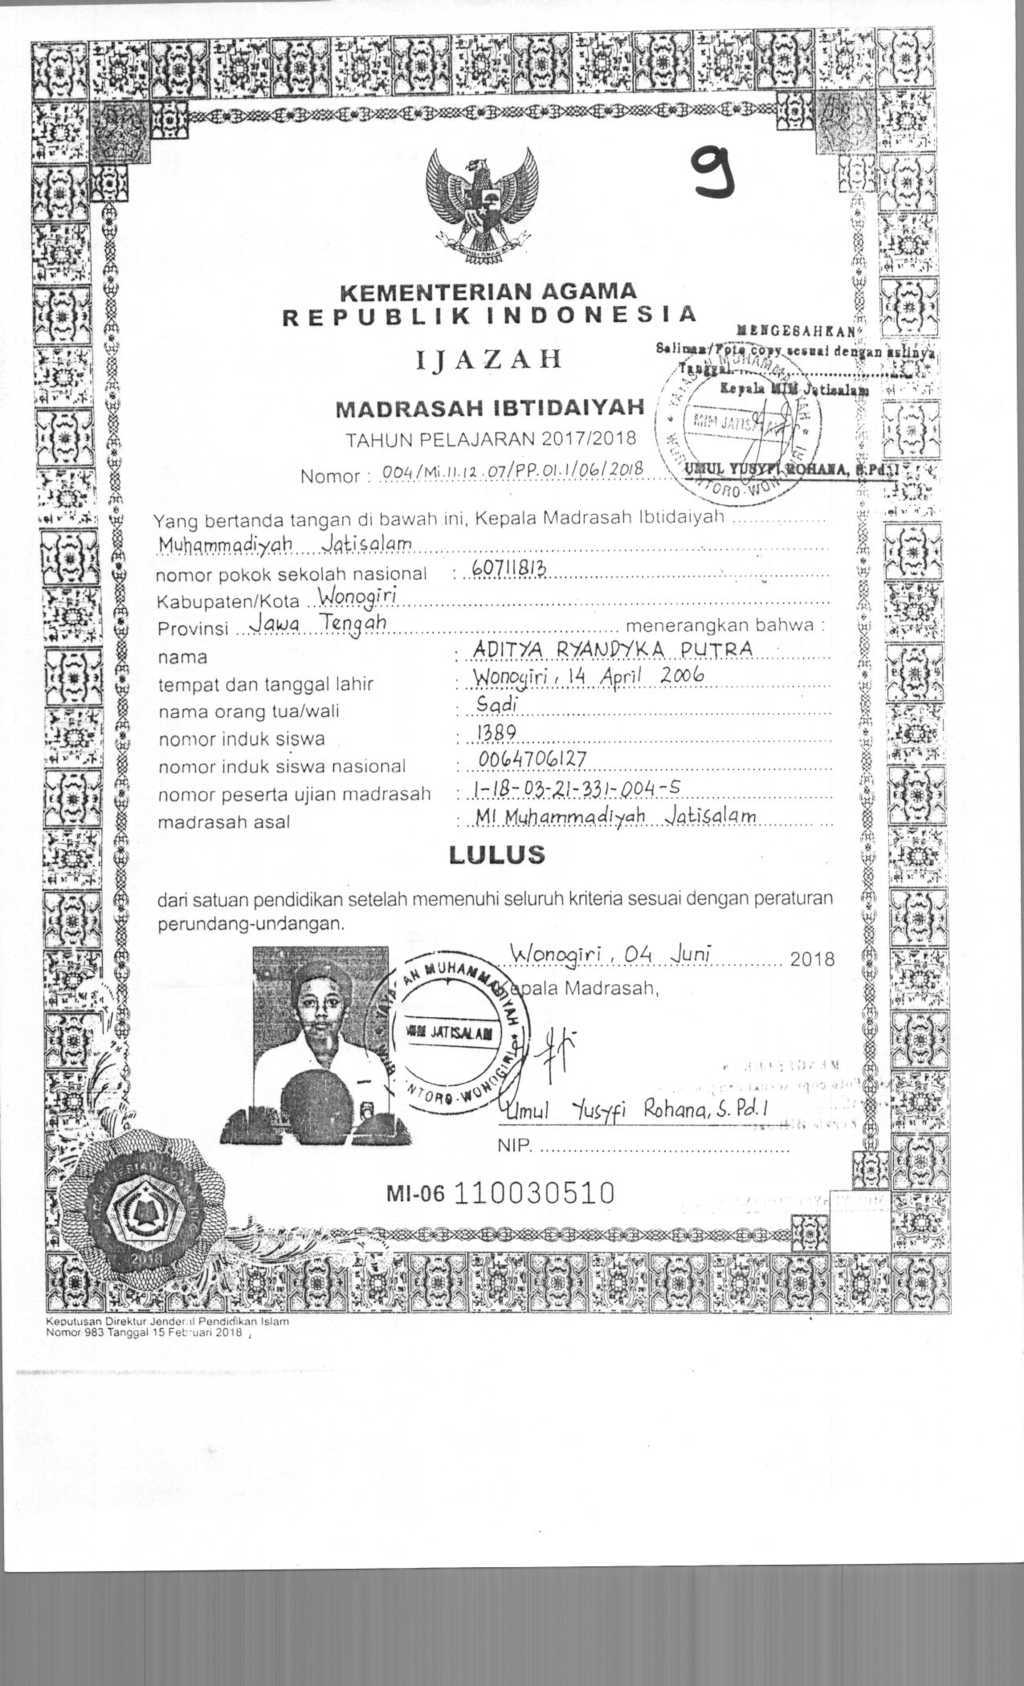 9
KEMENTERIAN AGAMA
REPUBLIK INDONESIA
MENGESAHKAN
Salinan/Foto copy sesuai dengan aslinya
Tanggal
Kepala MIM Jatisalam
UMUL YUSYFI ROHANA, S.Pd.I
MIM JATISALAM
IJAZAH
MADRASAH IBTIDAIYAH
TAHUN PELAJARAN 2017/2018
Nomor : 004/Mi.11.12.07/PP.01.1/06/2018
Yang bertanda tangan di bawah ini, Kepala Madrasah Ibtidaiyah
Muhammadiyah Jatisalam
nomor pokok sekolah nasional : 60711813
Kabupaten/Kota Wonogiri
Provinsi Jawa Tengah menerangkan bahwa :
nama : ADITYA RYANDYKA PUTRA
tempat dan tanggal lahir : Wonogiri, 14 April 2006
nama orang tua/wali : Sadi
nomor induk siswa : 1389
nomor induk siswa nasional : 0064706127
nomor peserta ujian madrasah : 1-18-03-21-331-004-5
madrasah asal : MI Muhammadiyah Jatisalam
LULUS
dari satuan pendidikan setelah memenuhi seluruh kriteria sesuai dengan peraturan
perundang-undangan.
Wonogiri, 04 Juni 2018
Kepala Madrasah,
MUHAMMADIYAH
MIM JATISALAM
WONOGIRI
Umul Yusyfi Rohana, S.Pd.I
NIP.
MI-06 110030510
2018
Keputusan Direktur Jenderal Pendidikan Islam
Nomor 983 Tanggal 15 Februari 2018